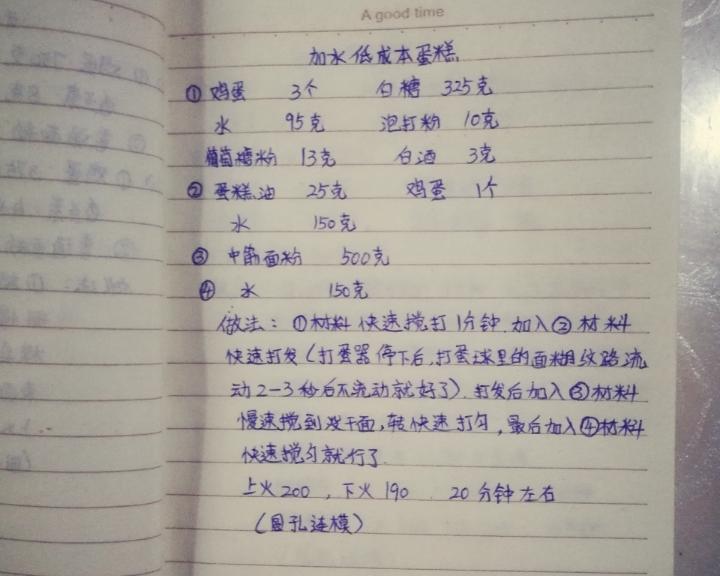 A good time
加水低成本蛋糕
① 鸡蛋 3个 白糖 325克
水 95克 泡打粉 10克
葡萄糖粉 13克 白酒 3克
② 蛋糕油 25克 鸡蛋 1个
水 150克
③ 中筋面粉 500克
④ 水 150克
做法：①材料快速搅打1分钟.加入②材料
快速打发（打蛋器停下后,打蛋球里的面糊纹路流
动2-3秒后不流动就好了）.打发后加入③材料
慢速搅到没干面,转快速打匀,最后加入④材料
快速搅匀就行了.
上火200，下火190 20分钟左右
（圆孔连模）